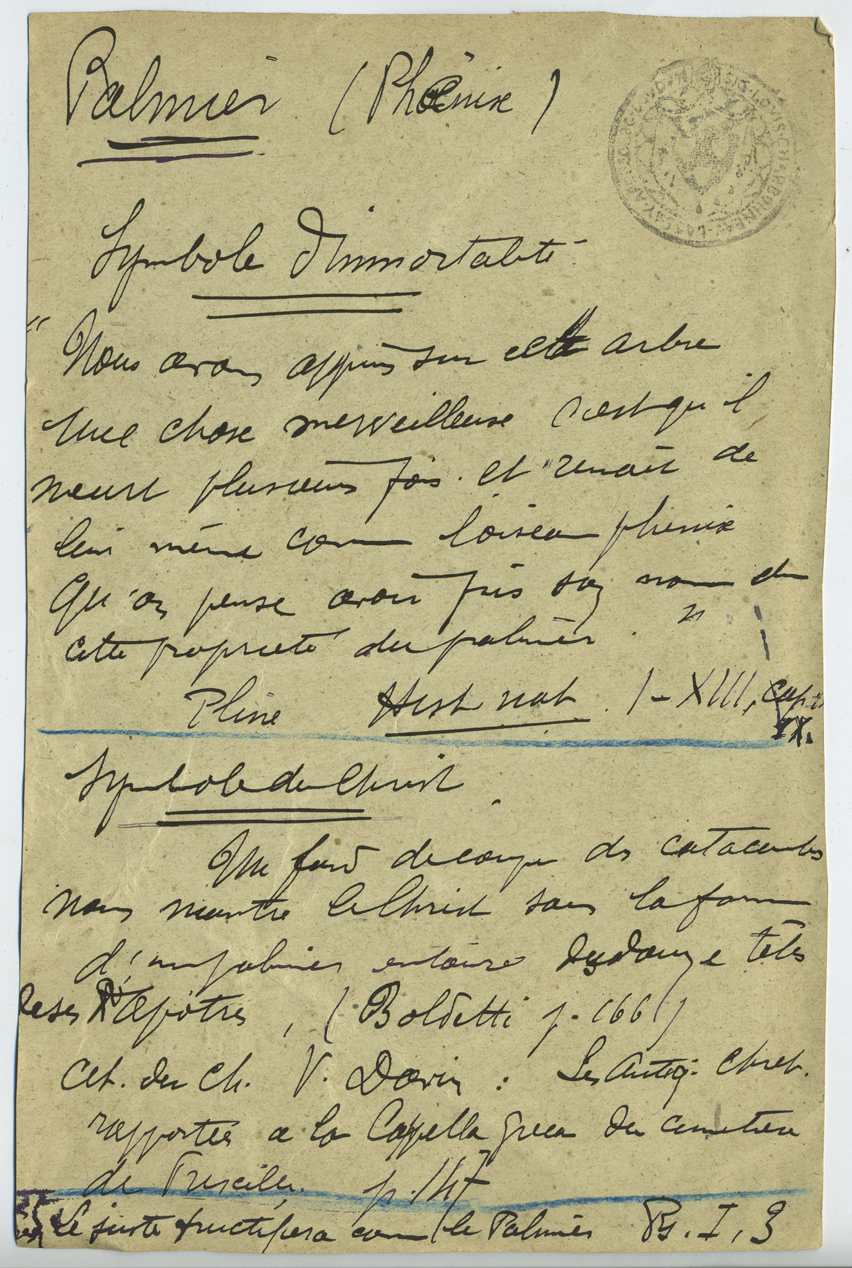 Palmier (Phœnix)
Symbole d'immortalité
"Nous avons appris sur cet arbre
une chose merveilleuse c'est qu'il
meurt plusieurs fois et renait de
lui même comme l'oiseau phenix
qu'on pense avoir pris son nom de
cette propriété du palmier. "
Pline Hist nat. l - XIII, cap.
IX.
Symbole du Christ
Un fond de coupe des catacombes
nous montre le Christ sous la forme
d'un palmier entouré des douze têtes
de ses Apôtres, (Boldetti p. 166)
Cit. du Ch. V. Davin : Les Antiq. chret.
rapportées a la Capella greca du cimetière
de Priscille. p. 147
Le juste fructifiera comme le Palmier Ps. I, 3